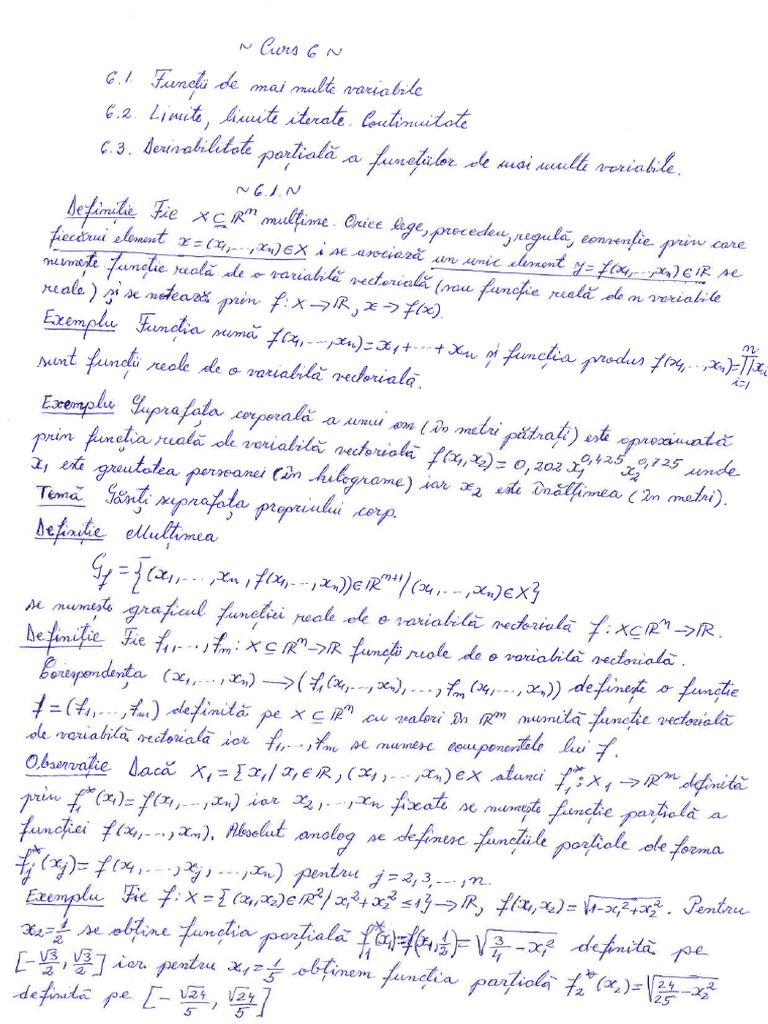 ~ Curs 6 ~
6.1. Funcții de mai multe variabile
6.2. Limite, limite iterate. Continuitate
6.3. Derivabilitate parțială a funcțiilor de mai multe variabile.
~ 6.1. ~
Definiție Fie X ⊆ ℝⁿ mulțime. Orice lege, procedeu, regulă, convenție prin care
fiecărui element x=(x₁,...,xₙ)∈X i se asociază un unic element y=f(x₁,...,xₙ)∈ℝ se
numește funcție reală de o variabilă vectorială (sau funcție reală de n variabile
reale) și se notează prin f: X→ℝ, x→f(x).
Exemplu Funcția sumă f(x₁,...,xₙ)=x₁+...+xₙ și funcția produs f(x₁,...,xₙ)=∏ⁿᵢ₌₁xᵢ
sunt funcții reale de o variabilă vectorială.
Exemplu Suprafața corporală a unui om (în metri pătrați) este aproximată
prin funcția reală de variabilă vectorială f(x₁,x₂)=0,202x₁^0,425 x₂^0,725 unde
x₁ este greutatea persoanei (în kilograme) iar x₂ este înălțimea (în metri).
Temă Găsiți suprafața propriului corp.
Definiție Mulțimea
G_f = {(x₁,...,xₙ, f(x₁,...,xₙ))∈ℝⁿ⁺¹/(x₁,...,xₙ)∈X}
se numește graficul funcției reale de o variabilă vectorială f: X⊆ℝⁿ→ℝ.
Definiție Fie f₁,...,fₘ: X⊆ℝⁿ→ℝ funcții reale de o variabilă vectorială.
Corespondența (x₁,...,xₙ)→(f₁(x₁,...,xₙ),...,fₘ(x₁,...,xₙ)) definește o funcție
f=(f₁,...,fₘ) definită pe X⊆ℝⁿ cu valori în ℝᵐ numită funcție vectorială
de variabilă vectorială iar f₁,...,fₘ se numesc componentele lui f.
Observație Dacă X₁={x₁/x₁∈ℝ, (x₁,...,xₙ)∈X atunci f₁*: X₁→ℝᵐ definită
prin f₁*(x₁)=f(x₁,...,xₙ) iar x₂,...,xₙ fixate se numește funcție parțială a
funcției f(x₁,...,xₙ). Absolut analog se definesc funcțiile parțiale de forma
fⱼ*(xⱼ)=f(x₁,...,xⱼ,...,xₙ) pentru j=2,3,...,n.
Exemplu Fie f: X={(x₁,x₂)∈ℝ²/x₁²+x₂²≤1}→ℝ, f(x₁,x₂)=√(1-x₁²+x₂²). Pentru
x₂=1/2 se obține funcția parțială f₁*(x₁)=f(x₁,1/2)=√(3/4-x₁²) definită pe
[-√3/2, √3/2] iar pentru x₁=1/5 obținem funcția parțială f₂*(x₂)=√(24/25-x₂²)
definită pe [-√24/5, √24/5]